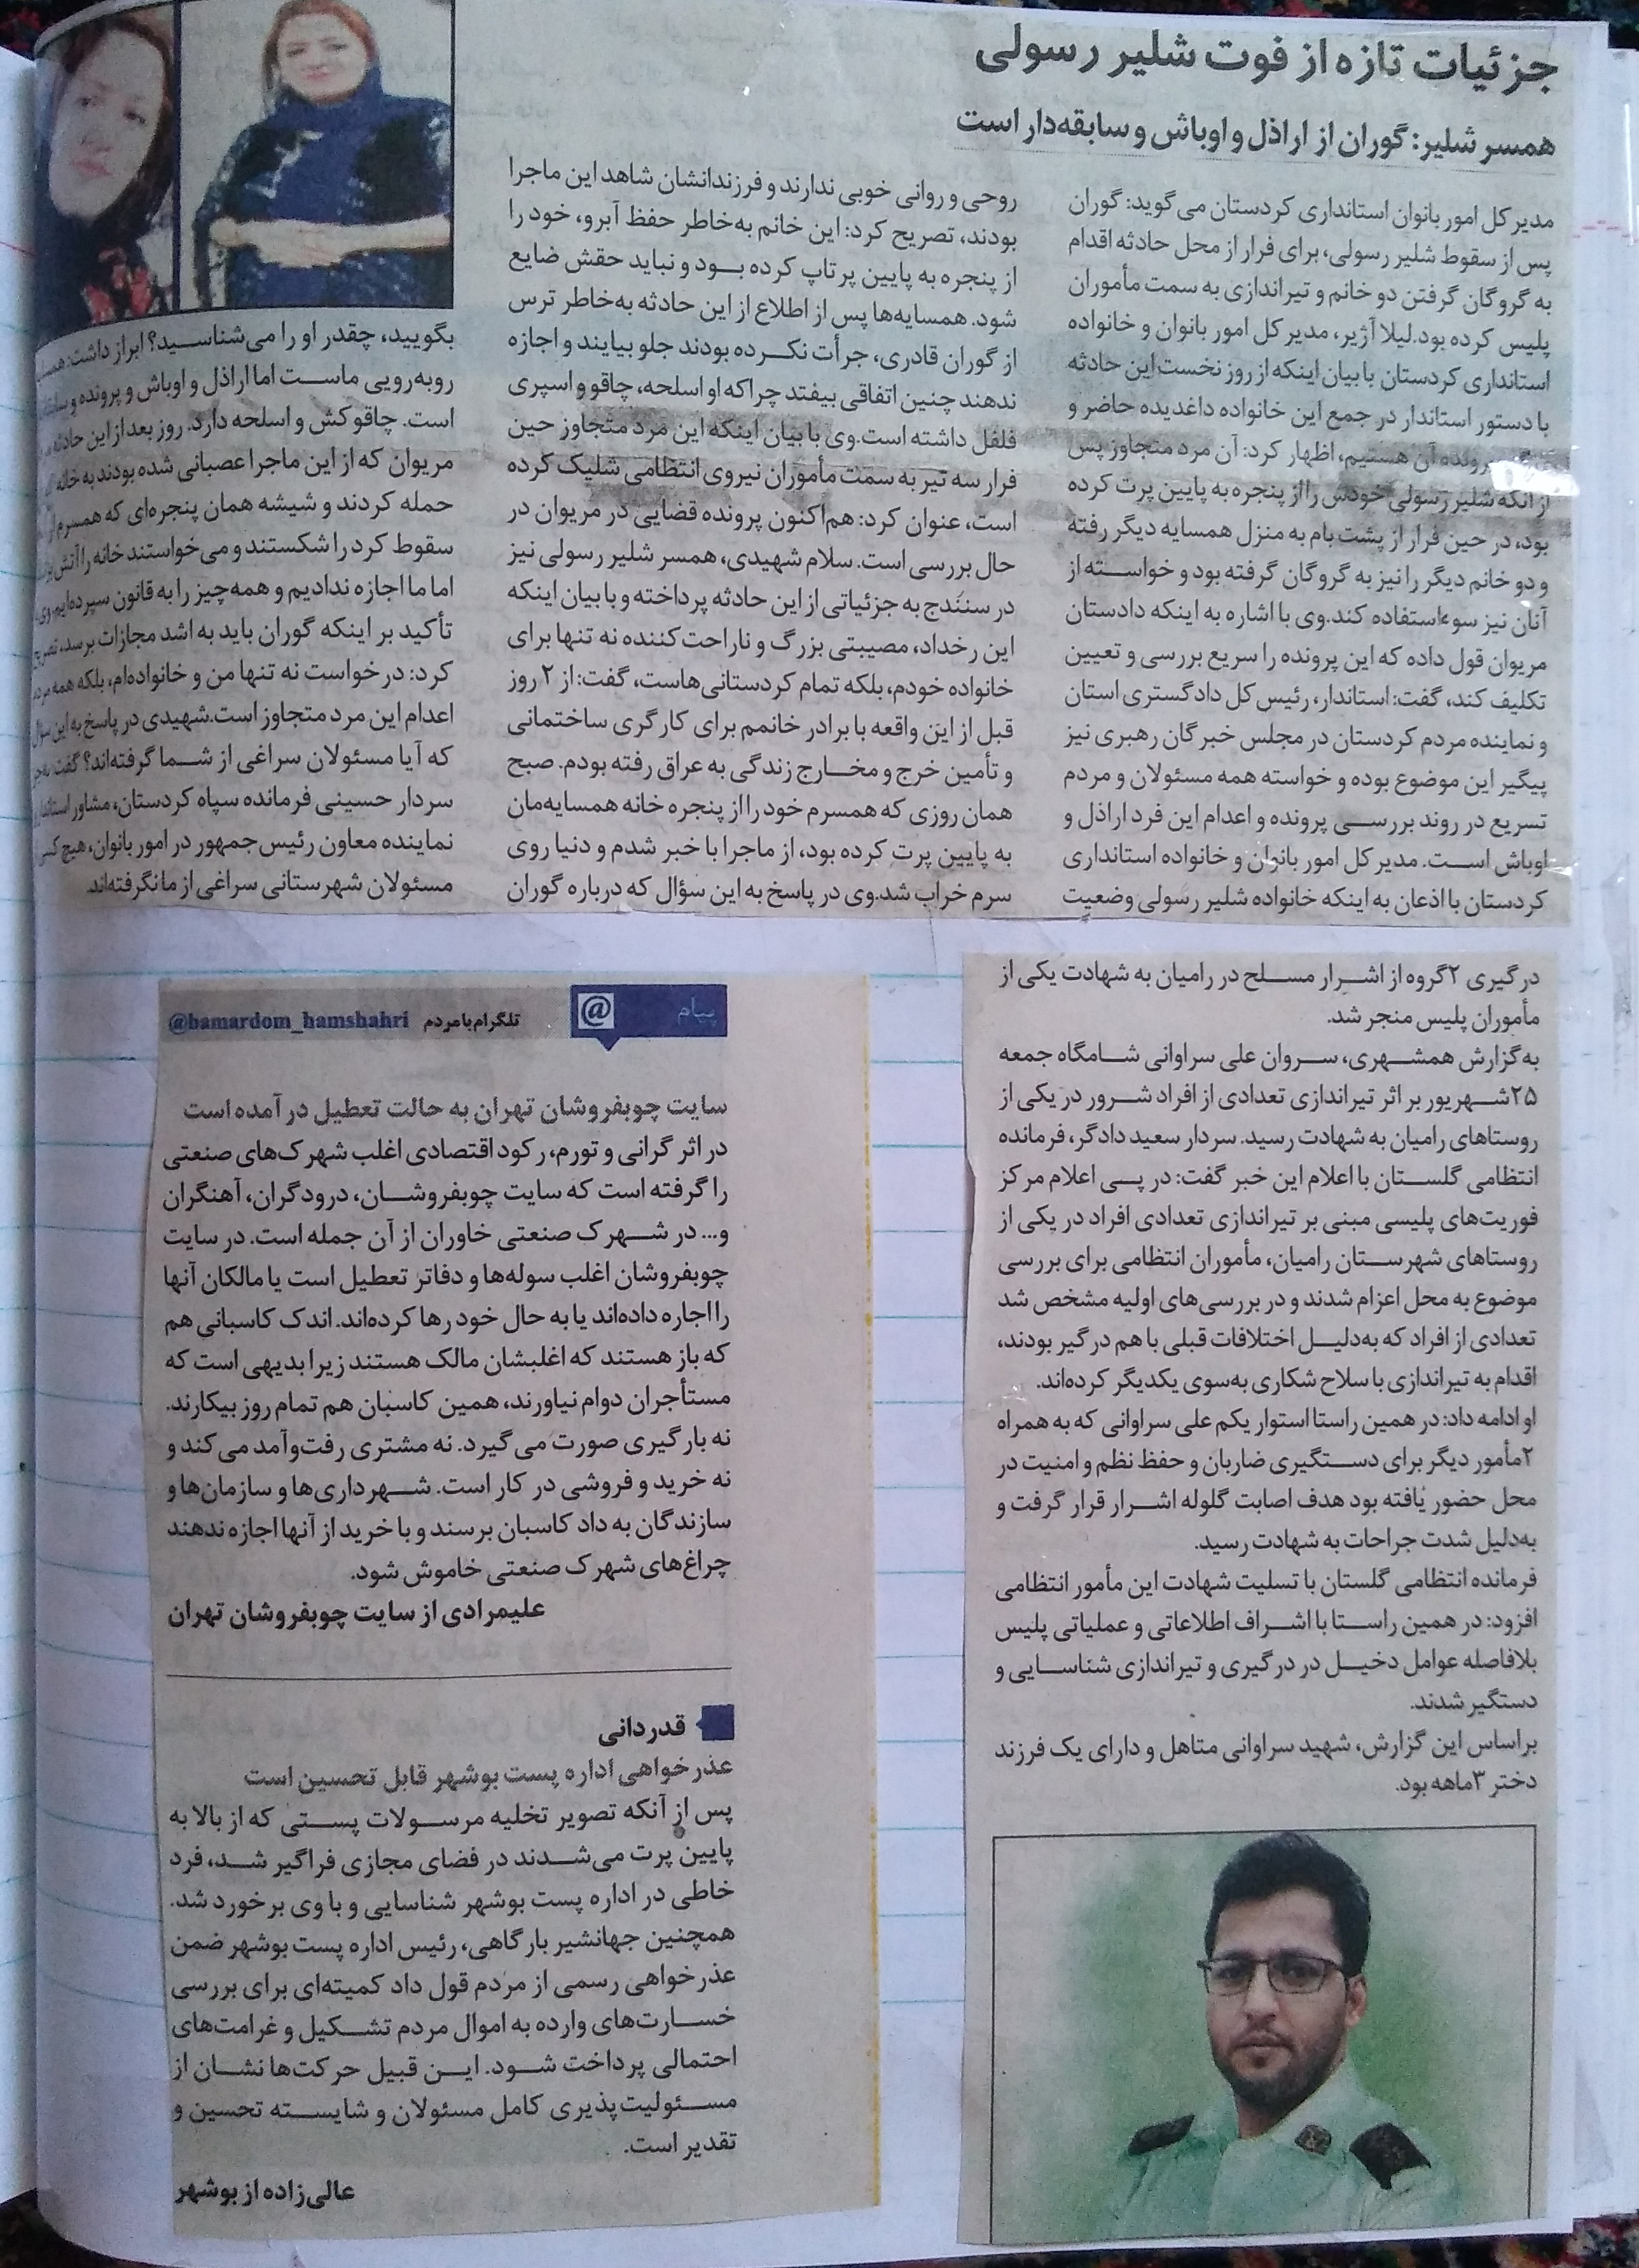 جزئیات تازه از فوت شلیر رسولی
همسر شلیر: گوران از اراذل و اوباش و سابقه‌دار است
مدیر کل امور بانوان استانداری کردستان می‌گوید: گوران
پس از سقوط شلیر رسولی، برای فرار از محل حادثه اقدام
به گروگان گرفتن دو خانم و تیراندازی به سمت مأموران
پلیس کرده بود. لیلا آژیر، مدیر کل امور بانوان و خانواده
استانداری کردستان با بیان اینکه از روز نخست این حادثه
با دستور استاندار در جمع این خانواده داغدیده حاضر و
پرونده آن هستیم، اظهار کرد: آن مرد متجاوز پس
از آنکه شلیر رسولی خودش را از پنجره به پایین پرت کرده
بود، در حین فرار از پشت‌بام به منزل همسایه دیگر رفته
و دو خانم دیگر را نیز به گروگان گرفته بود و خواسته از
آنان نیز سوءاستفاده کند. وی با اشاره به اینکه دادستان
مریوان قول داده که این پرونده را سریع بررسی و تعیین
تکلیف کند، گفت: استاندار، رئیس کل دادگستری استان
و نماینده مردم کردستان در مجلس خبرگان رهبری نیز
پیگیر این موضوع بوده و خواسته همه مسئولان و مردم
تسریع در روند بررسی پرونده و اعدام این فرد اراذل و
اوباش است. مدیر کل امور بانوان و خانواده استانداری
کردستان با اذعان به اینکه خانواده شلیر رسولی وضعیت
روحی و روانی خوبی ندارند و فرزندانشان شاهد این ماجرا
بودند، تصریح کرد: این خانم به‌خاطر حفظ آبرو، خود را
از پنجره به پایین پرتاپ کرده بود و نباید حقش ضایع
شود. همسایه‌ها پس از اطلاع از این حادثه به‌خاطر ترس
از گوران قادری، جرأت نکرده بودند جلو بیایند و اجازه
ندهند چنین اتفاقی بیفتد چراکه او اسلحه، چاقو و اسپری
فلفل داشته است. وی با بیان اینکه این مرد متجاوز حین
فرار سه تیر به سمت مأموران نیروی انتظامی شلیک کرده
است، عنوان کرد: هم‌اکنون پرونده قضایی در مریوان در
حال بررسی است. سلام شهیدی، همسر شلیر رسولی نیز
در سنندج به جزئیاتی از این حادثه پرداخته و با بیان اینکه
این رخداد، مصیبتی بزرگ و ناراحت‌کننده نه تنها برای
خانواده خودم، بلکه تمام کردستانی‌هاست، گفت: از ۲ روز
قبل از این واقعه با برادر خانمم برای کارگری ساختمانی
و تأمین خرج و مخارج زندگی به عراق رفته بودم. صبح
همان روزی که همسرم خود را از پنجره خانه همسایه‌مان
به پایین پرت کرده بود، از ماجرا با خبر شدم و دنیا روی
سرم خراب شد. وی در پاسخ به این سؤال که درباره گوران
بگویید، چقدر او را می‌شناسید؟ ابراز داشت:
روبه‌رویی ماست اما اراذل و اوباش و پرونده و
است. چاقوکش و اسلحه دارد. روز بعد از این حادثه
مریوان که از این ماجرا عصبانی شده بودند به خانه
حمله کردند و شیشه همان پنجره‌ای که همسرم
سقوط کرد را شکستند و می‌خواستند خانه را آتش
اما ما اجازه ندادیم و همه‌چیز را به قانون سپرده‌ایم. وی
تأکید بر اینکه گوران باید به اشد مجازات برسد، تصریح
کرد: درخواست نه تنها من و خانواده‌ام، بلکه همه
اعدام این مرد متجاوز است. شهیدی در پاسخ به این سؤال
که آیا مسئولان سراغی از شما گرفته‌اند؟ گفت:
سردار حسینی فرمانده سپاه کردستان، مشاور
نماینده معاون رئیس‌جمهور در امور بانوان، هیچ
مسئولان شهرستانی سراغی از ما نگرفته‌اند.
درگیری ۲ گروه از اشرار مسلح در رامیان به شهادت یکی از
مأموران پلیس منجر شد.
به‌گزارش همشهری، سروان علی سراوانی شامگاه جمعه
۲۵ شهریور بر اثر تیراندازی تعدادی از افراد شرور در یکی از
روستاهای رامیان به شهادت رسید. سردار سعید دادگر، فرمانده
انتظامی گلستان با اعلام این خبر گفت: در پی اعلام مرکز
فوریت‌های پلیسی مبنی بر تیراندازی تعدادی افراد در یکی از
روستاهای شهرستان رامیان، مأموران انتظامی برای بررسی
موضوع به محل اعزام شدند و در بررسی‌های اولیه مشخص شد
تعدادی از افراد که به‌دلیل اختلافات قبلی با هم درگیر بودند،
اقدام به تیراندازی با سلاح شکاری به‌سوی یکدیگر کرده‌اند.
او ادامه داد: در همین راستا استوار یکم علی سراوانی که به همراه
۲ مأمور دیگر برای دستگیری ضاربان و حفظ نظم و امنیت در
محل حضور یافته بود هدف اصابت گلوله اشرار قرار گرفت و
به‌دلیل شدت جراحات به شهادت رسید.
فرمانده انتظامی گلستان با تسلیت شهادت این مأمور انتظامی
افزود: در همین راستا با اشراف اطلاعاتی و عملیاتی پلیس
بلافاصله عوامل دخیل در درگیری و تیراندازی شناسایی و
دستگیر شدند.
براساس این گزارش، شهید سراوانی متاهل و دارای یک فرزند
دختر ۳ ماهه بود.
پیام @ تلگرام با مردم @bamardom_hamshahri
سایت چوبفروشان تهران به حالت تعطیل در آمده است
در اثر گرانی و تورم، رکود اقتصادی اغلب شهرک‌های صنعتی
را گرفته است که سایت چوبفروشان، درودگران، آهنگران
و... در شهرک صنعتی خاوران از آن جمله است. در سایت
چوبفروشان اغلب سوله‌ها و دفاتر تعطیل است یا مالکان آنها
را اجاره داده‌اند یا به حال خود رها کرده‌اند. اندک کاسبانی هم
که باز هستند که اغلبشان مالک هستند زیرا بدیهی است که
مستأجران دوام نیاورند، همین کاسبان هم تمام روز بیکارند.
نه بارگیری صورت می‌گیرد. نه مشتری رفت‌وآمد می‌کند و
نه خرید و فروشی در کار است. شهرداری‌ها و سازمان‌ها و
سازندگان به داد کاسبان برسند و با خرید از آنها اجازه ندهند
چراغ‌های شهرک صنعتی خاموش شود.
علیمرادی از سایت چوبفروشان تهران
قدردانی
عذرخواهی اداره پست بوشهر قابل تحسین است
پس از آنکه تصویر تخلیه مرسولات پستی که از بالا به
پایین پرت می‌شدند در فضای مجازی فراگیر شد، فرد
خاطی در اداره پست بوشهر شناسایی و با وی برخورد شد.
همچنین جهانشیر بارگاهی، رئیس اداره پست بوشهر ضمن
عذرخواهی رسمی از مردم قول داد کمیته‌ای برای بررسی
خسارت‌های وارده به اموال مردم تشکیل و غرامت‌های
احتمالی پرداخت شود. این قبیل حرکت‌ها نشان از
مسئولیت‌پذیری کامل مسئولان و شایسته تحسین و
تقدیر است.
عالی‌زاده از بوشهر